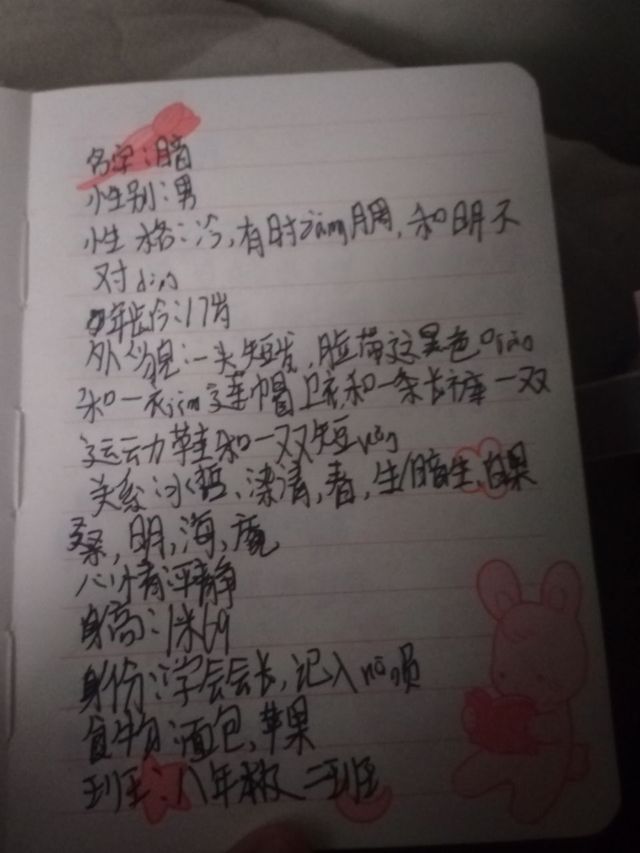 名字:暗
性别:男
性格:冷,有时,和明不
对
年龄:17岁
外貌:一头短发,脸带这黑色
和一连帽卫衣和一条长裤一双
运动鞋和一双短
关系:冰哲、染清,春,生/暗生、白果
桑,明,海,魔
心情:平静
身高:1米69
身份:学会会长,记入员
食物:面包、苹果
班至:八年极 二班至